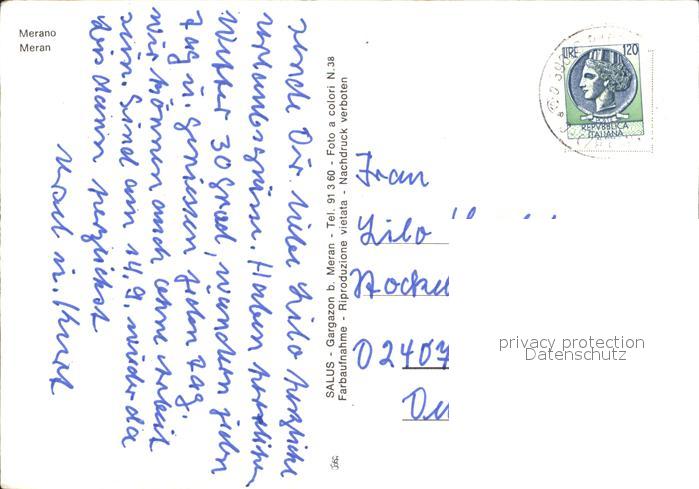 Merano
Meran
sende Dir, liebe Lilo herzliche
Urlaubsgrüsse. Haben herrliches
Wetter 30 Grad, wandern jeden
Tag u. geniessen jeden Tag.
Wir können auch ohne Arbeit
sein. Sind am 14.9. wieder da
bis dann herzlichst
u. Kurt
SALUS - Gargazon b. Meran - Tel. 91 3 60 - Foto a colori N.38
Farbaufnahme - Riproduzione vietata - Nachdruck verboten
LIRE 120
POSTE
REPVBBLICA
ITALIANA
Frau
Lilo
0240
privacy protection
Datenschutz